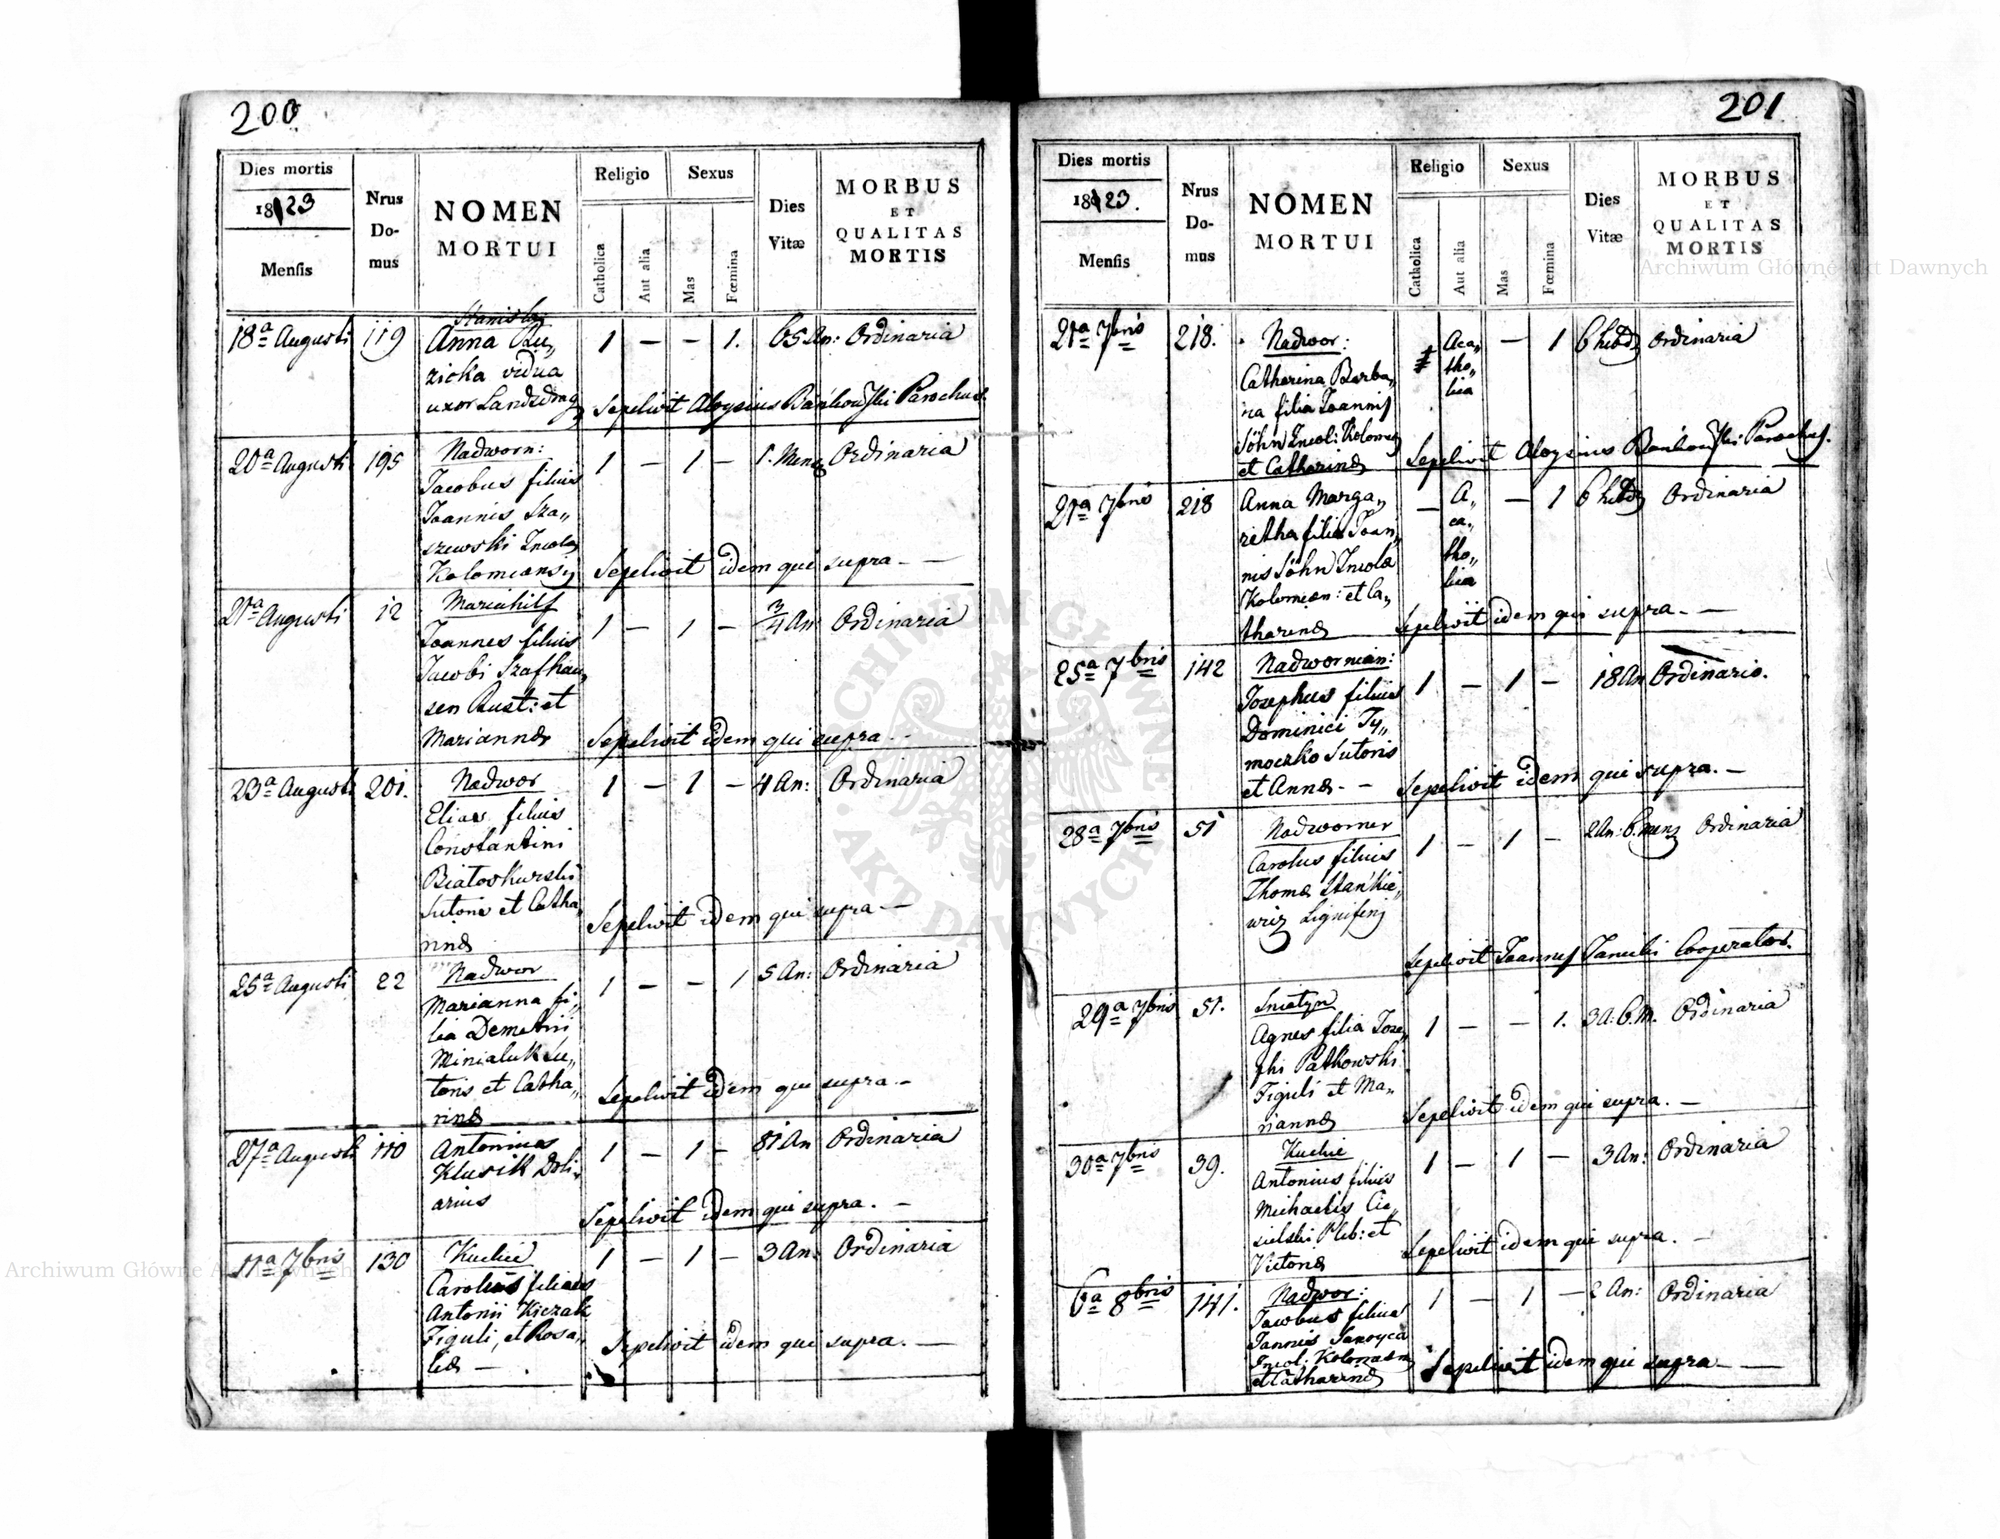 200
Dies mortis
1823
Mensis
Nrus Do-mus
NOMEN
MORTUI
Religio
Catholica
Aut alia
Sexus
Mas
Fœmina
Dies
Vitæ
MORBUS
ET
QUALITAS
MORTIS
18a Augusti 119 1 — — 1. 65 An: Ordinaria
Anna Ru„
zicka vidua
uxor
Sepelivit Aloysius Bańkowski Parochus
20a Augusti 195 Nadworn: 1 — 1 — 1. Mens Ordinaria
Jacobus filius
Joannis Sza„
szewski Incolæ
Kolomiensis
Sepelivit idem qui supra — —
21a Augusti 12 Mariahilf 1 — 1 — 3/4 An Ordinaria
Joannes filius
Jacobi Szafhau„
sen Rust: et
Mariannæ
Sepelivit idem qui supra —
23a Augusti 201. Nadwor 1 — 1 — 4 An: Ordinaria
Elias filius
Constantini
Białoskurski
Sutoris et Catha„
rinæ
Sepelivit idem qui supra —
25a Augusti 22 Nadwor 1 — — 1 5 An: Ordinaria
Marianna fi„
lia Demetrii
Minialuk Su„
toris et Catha„
rinæ
Sepelivit idem qui supra —
27a Augusti 110 Antonius 1 — 1 — 81 An Ordinaria
Klusik Doli„
arius
Sepelivit idem qui supra. —
11a 7bris 130 Kuckie 1 — 1 — 3 An: Ordinaria
Carolus filius
Antonii Kiczak
Figuli, et Rosa„
liæ —
Sepelivit idem qui supra. —
201
Dies mortis
1823.
Mensis
Nrus Do-mus
NOMEN
MORTUI
Religio
Catholica
Aut alia
Sexus
Mas
Fœmina
Dies
Vitæ
MORBUS
ET
QUALITAS
MORTIS
21a 7bris 218. Nadwor: Aca„tho„lica — 1 6 hebd Ordinaria
Catharina Barba„
ra filia Joannis
Söhn Incol: Kolomey
et Catharinæ
Sepelivit Aloysius Bańkowski Parochus.
21a 7bris 218 Anna Marga„ — A„ca„tho„lica — 1 6 hebd Ordinaria
retha filia Joan„
nis Söhn Incolæ
Kolomien: et Ca„
tharinæ
Sepelivit idem qui supra — —
25a 7bris 142 Nadwornian: 1 — 1 — 18 An Ordinaria.
Josephus filius
Dominici Ty„
moczko Sutoris
et Annæ — —
Sepelivit idem qui supra. —
28a 7bris 51 Nadworner 1 — 1 — 2 An: 6. mens Ordinaria
Carolus filius
Thomæ Stańkie„
wicz
Sepelivit Joannes Janecki Cooperator.
29a 7bris 51. Sniatyn 1 — — 1. 3 A: 6. M. Ordinaria
Agnes filia Jose„
phi Patkowski
Figuli et Ma„
riannæ
Sepelivit idem qui supra. —
30a 7bris 39. Kuckie 1 — 1 — 3 An: Ordinaria
Antonius filius
Michaelis Cie„
sielski Pleb: et
Victoriæ
Sepelivit idem qui supra. —
6a 8bris 141. Nadwor: 1 — 1 — 2 An: Ordinaria
Jacobus filius
Joannis
Incol:
et Catharinæ
Sepelivit idem qui supra — —
ARCHIWUM GŁÓWNE
AKT DAWNYCH
Archiwum Główne Akt Dawnych
Archiwum Główne Akt Dawnych